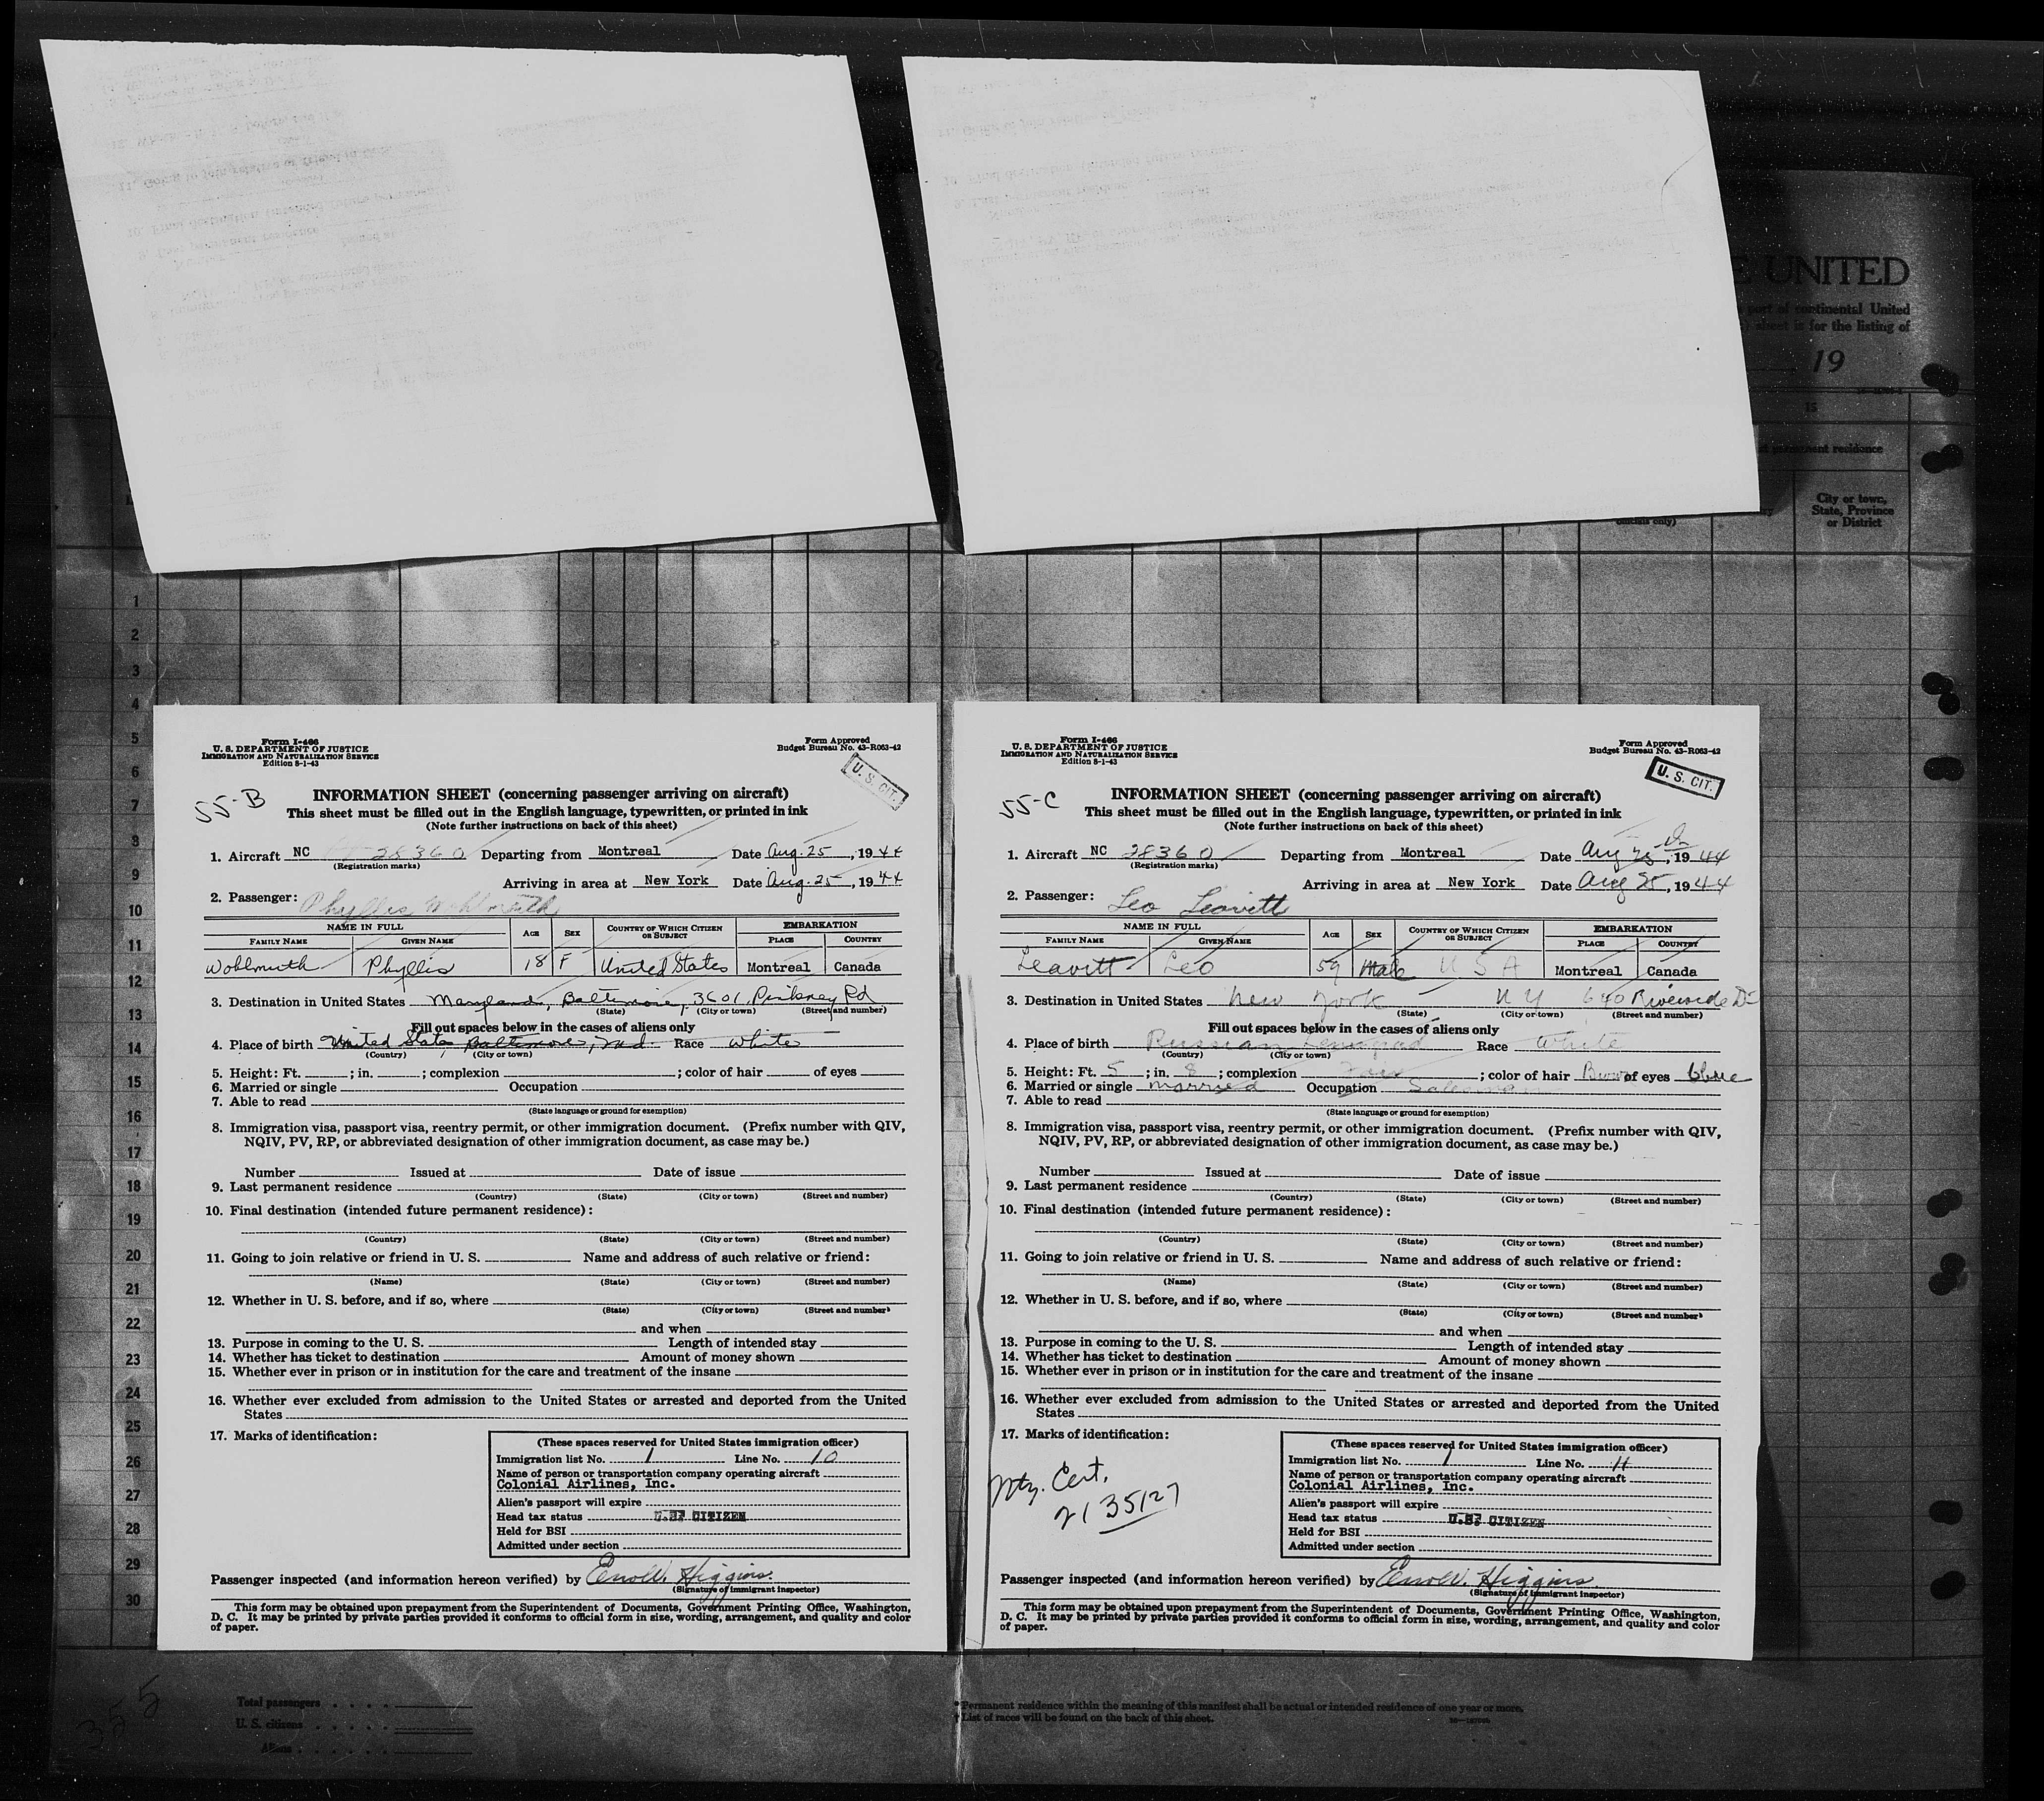 E UNITED
part of continental United
sheet is for the listing of
19
15
permanent residence
City or town,
State, Province
or District
officials only)
1
2
3
4
5
6
7
8
9
10
11
12
13
14
15
16
17
18
19
20
21
22
23
24
25
26
27
28
29
30
Form I-466
U. S. DEPARTMENT OF JUSTICE
IMMIGRATION AND NATURALIZATION SERVICE
Edition 8-1-43
Form Approved
Budget Bureau No. 43-R063-42
U. S. CIT.
55-B
INFORMATION SHEET (concerning passenger arriving on aircraft)
This sheet must be filled out in the English language, typewritten, or printed in ink
(Note further instructions on back of this sheet)
1. Aircraft NC 28360 Departing from Montreal Date Aug. 25, 1944
(Registration marks)
Arriving in area at New York Date Aug. 25, 1944
2. Passenger: Phyllis Wohlmuth
NAME IN FULL AGE SEX COUNTRY OF WHICH CITIZEN OR SUBJECT EMBARKATION
FAMILY NAME GIVEN NAME PLACE COUNTRY
Wohlmuth Phyllis 18 F United States Montreal Canada
3. Destination in United States Maryland, Baltimore, 3601 Pinkney Rd
(State) (City or town) (Street and number)
Fill out spaces below in the cases of aliens only
4. Place of birth United States, Baltimore, Md. Race White
(Country) (City or town)
5. Height: Ft. ; in. ; complexion ; color of hair of eyes
6. Married or single Occupation
7. Able to read
(State language or ground for exemption)
8. Immigration visa, passport visa, reentry permit, or other immigration document. (Prefix number with QIV,
NQIV, PV, RP, or abbreviated designation of other immigration document, as case may be.)
Number Issued at Date of issue
9. Last permanent residence
(Country) (State) (City or town) (Street and number)
10. Final destination (intended future permanent residence):
(Country) (State) (City or town) (Street and number)
11. Going to join relative or friend in U. S. Name and address of such relative or friend:
(Name) (State) (City or town) (Street and number)
12. Whether in U. S. before, and if so, where
(State) (City or town) (Street and number)
and when
13. Purpose in coming to the U. S. Length of intended stay
14. Whether has ticket to destination Amount of money shown
15. Whether ever in prison or in institution for the care and treatment of the insane
16. Whether ever excluded from admission to the United States or arrested and deported from the United
States
17. Marks of identification:
(These spaces reserved for United States immigration officer)
Immigration list No. 1 Line No. 10
Name of person or transportation company operating aircraft
Colonial Airlines, Inc.
Alien's passport will expire
Head tax status U.S. CITIZEN
Held for BSI
Admitted under section
Passenger inspected (and information hereon verified) by Enoll W. Higgins
(Signature of immigrant inspector)
This form may be obtained upon prepayment from the Superintendent of Documents, Government Printing Office, Washington,
D. C. It may be printed by private parties provided it conforms to official form in size, wording, arrangement, and quality and color
of paper.
Form I-466
U. S. DEPARTMENT OF JUSTICE
IMMIGRATION AND NATURALIZATION SERVICE
Edition 8-1-43
Form Approved
Budget Bureau No. 43-R063-42
U. S. CIT.
55-C
INFORMATION SHEET (concerning passenger arriving on aircraft)
This sheet must be filled out in the English language, typewritten, or printed in ink
(Note further instructions on back of this sheet)
1. Aircraft NC 28360 Departing from Montreal Date Aug 25, 1944
(Registration marks)
Arriving in area at New York Date Aug 25, 1944
2. Passenger: Leo Leavitt
NAME IN FULL AGE SEX COUNTRY OF WHICH CITIZEN OR SUBJECT EMBARKATION
FAMILY NAME GIVEN NAME PLACE COUNTRY
Leavitt Leo 59 Male U S A Montreal Canada
3. Destination in United States New York N Y 640 Riverside Dr
(State) (City or town) (Street and number)
Fill out spaces below in the cases of aliens only
4. Place of birth Russian Race White
(Country) (City or town)
5. Height: Ft. 5 ; in. 8 ; complexion Fair ; color of hair Brown of eyes blue
6. Married or single married Occupation Salesman
7. Able to read
(State language or ground for exemption)
8. Immigration visa, passport visa, reentry permit, or other immigration document. (Prefix number with QIV,
NQIV, PV, RP, or abbreviated designation of other immigration document, as case may be.)
Number Issued at Date of issue
9. Last permanent residence
(Country) (State) (City or town) (Street and number)
10. Final destination (intended future permanent residence):
(Country) (State) (City or town) (Street and number)
11. Going to join relative or friend in U. S. Name and address of such relative or friend:
(Name) (State) (City or town) (Street and number)
12. Whether in U. S. before, and if so, where
(State) (City or town) (Street and number)
and when
13. Purpose in coming to the U. S. Length of intended stay
14. Whether has ticket to destination Amount of money shown
15. Whether ever in prison or in institution for the care and treatment of the insane
16. Whether ever excluded from admission to the United States or arrested and deported from the United
States
17. Marks of identification:
Ntz. Cert.
2135127
(These spaces reserved for United States immigration officer)
Immigration list No. 1 Line No. 11
Name of person or transportation company operating aircraft
Colonial Airlines, Inc.
Alien's passport will expire
Head tax status U.S. CITIZEN
Held for BSI
Admitted under section
Passenger inspected (and information hereon verified) by Enoll W. Higgins
(Signature of immigrant inspector)
This form may be obtained upon prepayment from the Superintendent of Documents, Government Printing Office, Washington,
D. C. It may be printed by private parties provided it conforms to official form in size, wording, arrangement, and quality and color
of paper.
355
Total passengers
U. S. citizens
Aliens
*Permanent residence within the meaning of this manifest shall be actual or intended residence of one year or more.
†List of races will be found on the back of this sheet.